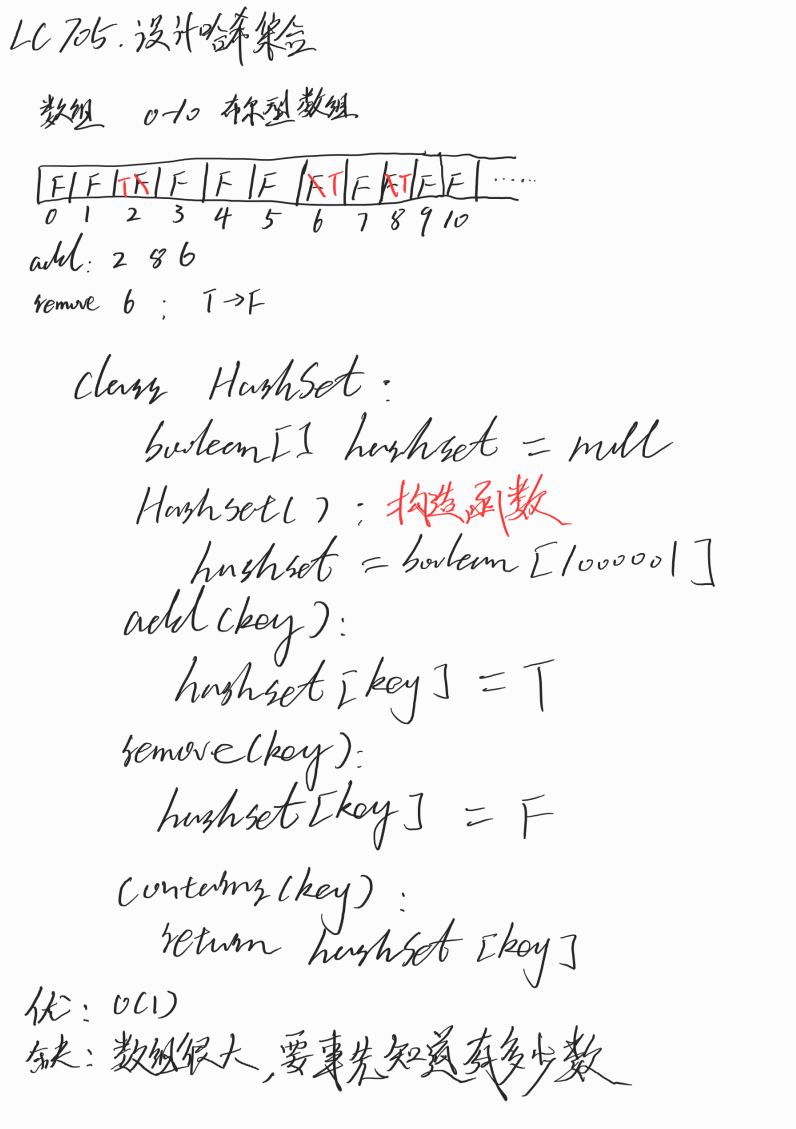 LC 705. 设计哈希集合
数组 0-10 布尔型数组
F F TF F F F FT F FT F F ......
0 1 2 3 4 5 6 7 8 9 10
add: 2 8 6
remove 6 : T→F
class HashSet:
boolean[] hashset = null
Hashset() : 构造函数
hashset = boolean [1000001]
add(key):
hashset[key] = T
remove(key):
hashset[key] = F
contains(key):
return hashset[key]
优: O(1)
缺: 数组很大,要事先知道有多少数